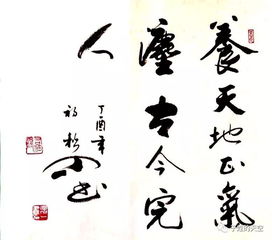 養天地正氣
灋古今完
人
丁酉年
書